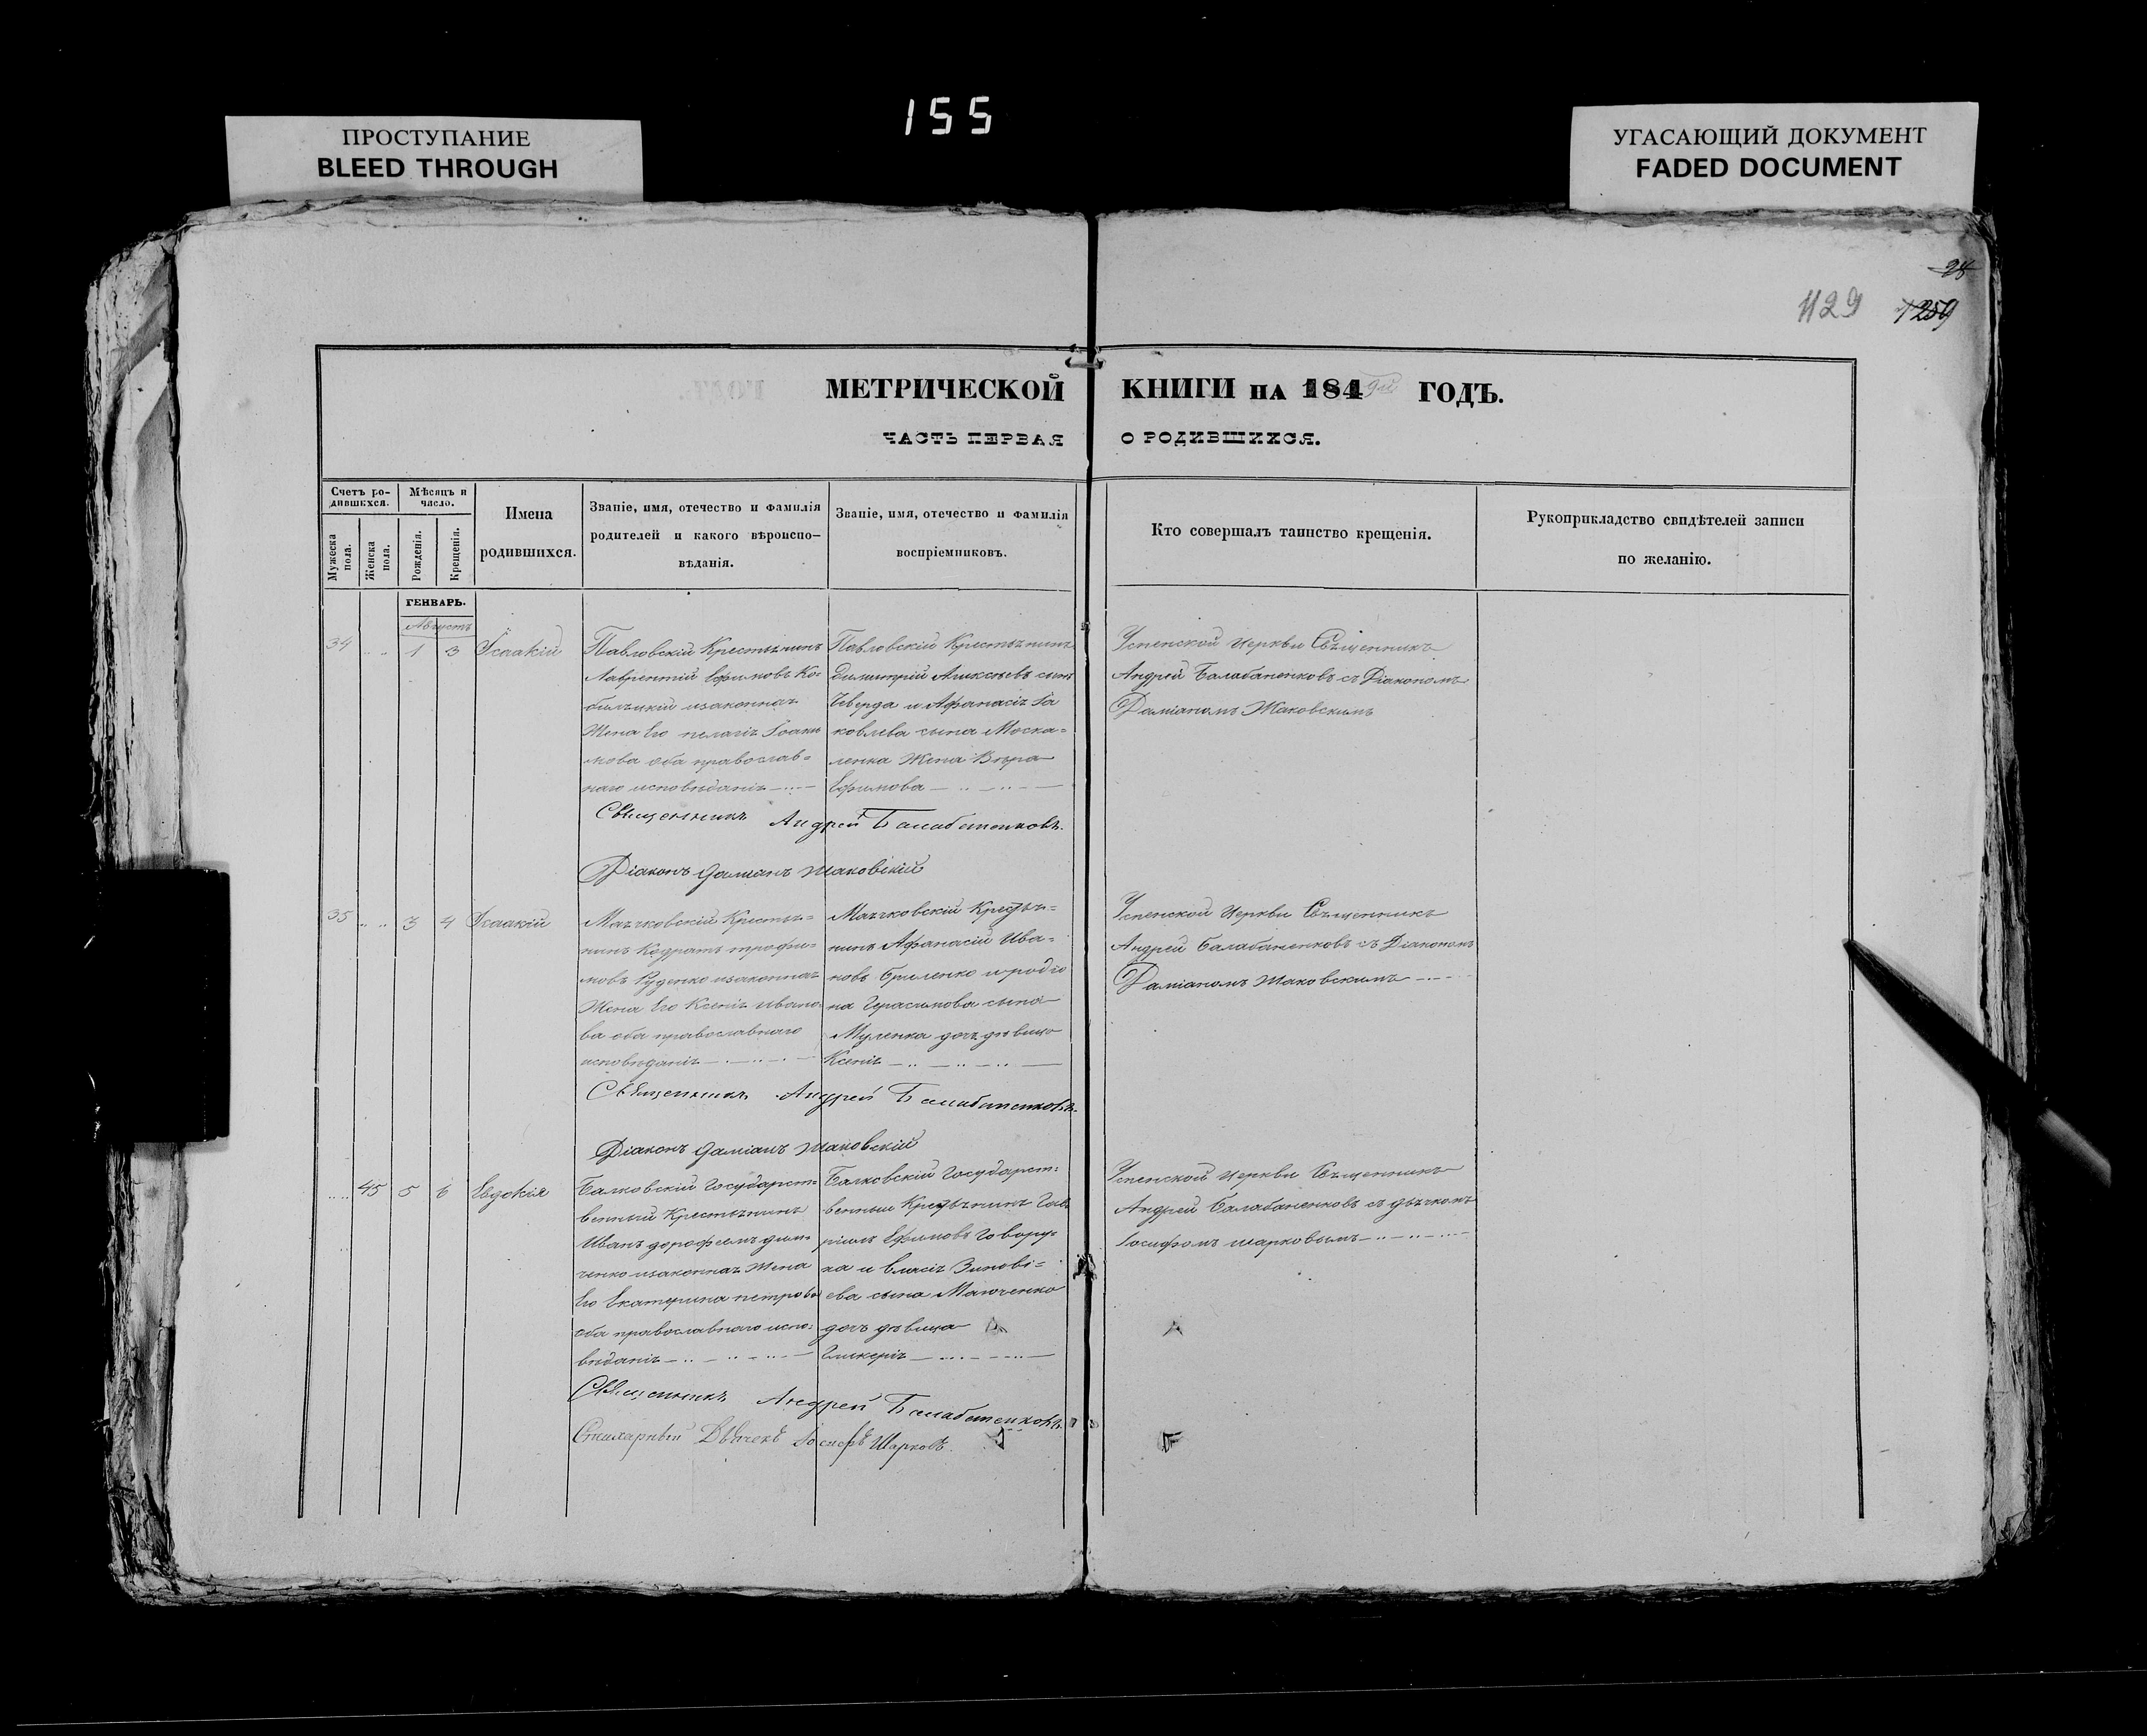 155
ПРОСТУПАНИЕ
BLEED THROUGH
УГАСАЮЩИЙ ДОКУМЕНТ
FADED DOCUMENT
28
1129 1259
МЕТРИЧЕСКОЙ КНИГИ НА 184 ГОДЪ.
ЧАСТЬ ПЕРВАЯ О РОДИВШИХСЯ.
Счетъ ро-
дившихся.
Мужеска пола.
Женска пола.
Мѣсяцъ и
число.
Рожденія.
Крещенія.
Имена
родившихся.
Званіе, имя, отечество и фамилія
родителей и какого вѣроиспо-
вѣданія.
Званіе, имя, отечество и фамилія
воспріемниковъ.
Кто совершалъ таинство крещенія.
Рукоприкладство свидѣтелей записи
по желанію.
ГЕНВАРЬ.
Августъ
34 1 3 Ісаакій
Павловскій Крестьянинъ
Лаврентій Ефимовъ Ко=
билѣцкій изаконная
Жена Его пелагія Іоаки
мова оба православ=
наго исповѣданія
Павловскій Крестьянинъ
Димитрій Алексѣевъ сынъ
Тверда и Афанасія Іа
ковлева сына Моска=
ленка Жена Вѣра
Ефимова
Успенской Церкви Священникъ
Андрей Балабаненковъ съ Діакономъ
Даміаномъ Жаковскимъ
Священникъ Андрей Балабаненковъ.
Діаконъ Даміанъ Жаковскій
35 3 4 Ісаакій
Маячковскій Крестья=
нинъ Кодратъ трофи=
мовъ Руденко изаконная
Жена Его Ксенія Ивано
ва оба православнаго
исповѣданія
Маячковскій Крестья=
нинъ Афанасій Ива=
новъ Гриленко и родіо
на Герасимова сына
Муленка дочь дѣвица
Ксенія
Успенской Церкви Священникъ
Андрей Балабаненковъ съ Діакономъ
Даміаномъ Жаковскимъ
Священникъ Андрей Балабаненковъ.
Діаконъ Даміанъ Жаковскій
45 5 6 Евдокія
Балковскій Государст=
венный Крестьянинъ
Иванъ дорофеевъ
ченко изаконная Жена
Его Екатерина петрова
оба православнаго испо=
вѣданія
Балковскій Государст=
венный Крестьянинъ Гав
ріилъ Ефимовъ Говору=
ха и Власія Зинові=
ева сына Манченко
дочь дѣвица
Гликерія
Успенской Церкви Священникъ
Андрей Балабаненковъ съ дьячкомъ
Іосифомъ шарковымъ
Священникъ Андрей Балабаненковъ.
Стихарный Дьячекъ Іосифъ Шарковъ.